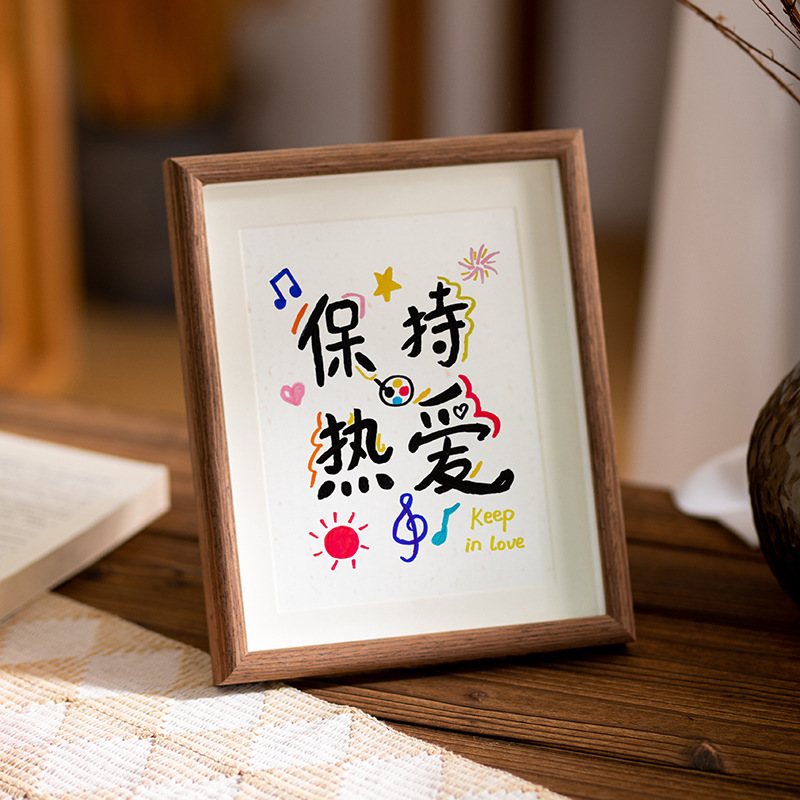 保持
热爱
Keep
in Love